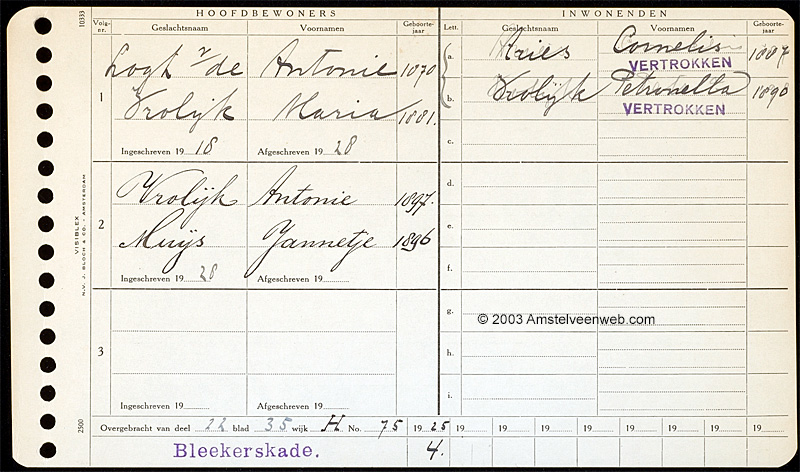 HOOFDBEWONERS
INWONENDEN
Volg-
nr.
Geslachtsnaam
Voornamen
Geboorte-
jaar
Lett.
Geslachtsnaam
Voornamen
Geboorte-
jaar
1
Logt v/de Antonie 1870
Vrolijk Maria 1881.
Ingeschreven 19 18 Afgeschreven 19 28
2
Vrolijk Antonie 1897.
Muijs Jannetje 1896
Ingeschreven 19 28 Afgeschreven 19
3
Ingeschreven 19 Afgeschreven 19
a. Aries Cornelis 1887
VERTROKKEN
b. Vrolijk Petronella 1890
VERTROKKEN
c.
d.
e.
f.
g.
© 2003 Amstelveenweb.com
h.
i.
Overgebracht van deel 22 blad 35 wijk H No. 75 19 25 19 19 19 19 19 19 19 19
Bleekerskade. 4.
10333
VISIBLEX
N.V. J. BLOCH & CO. - AMSTERDAM
2500